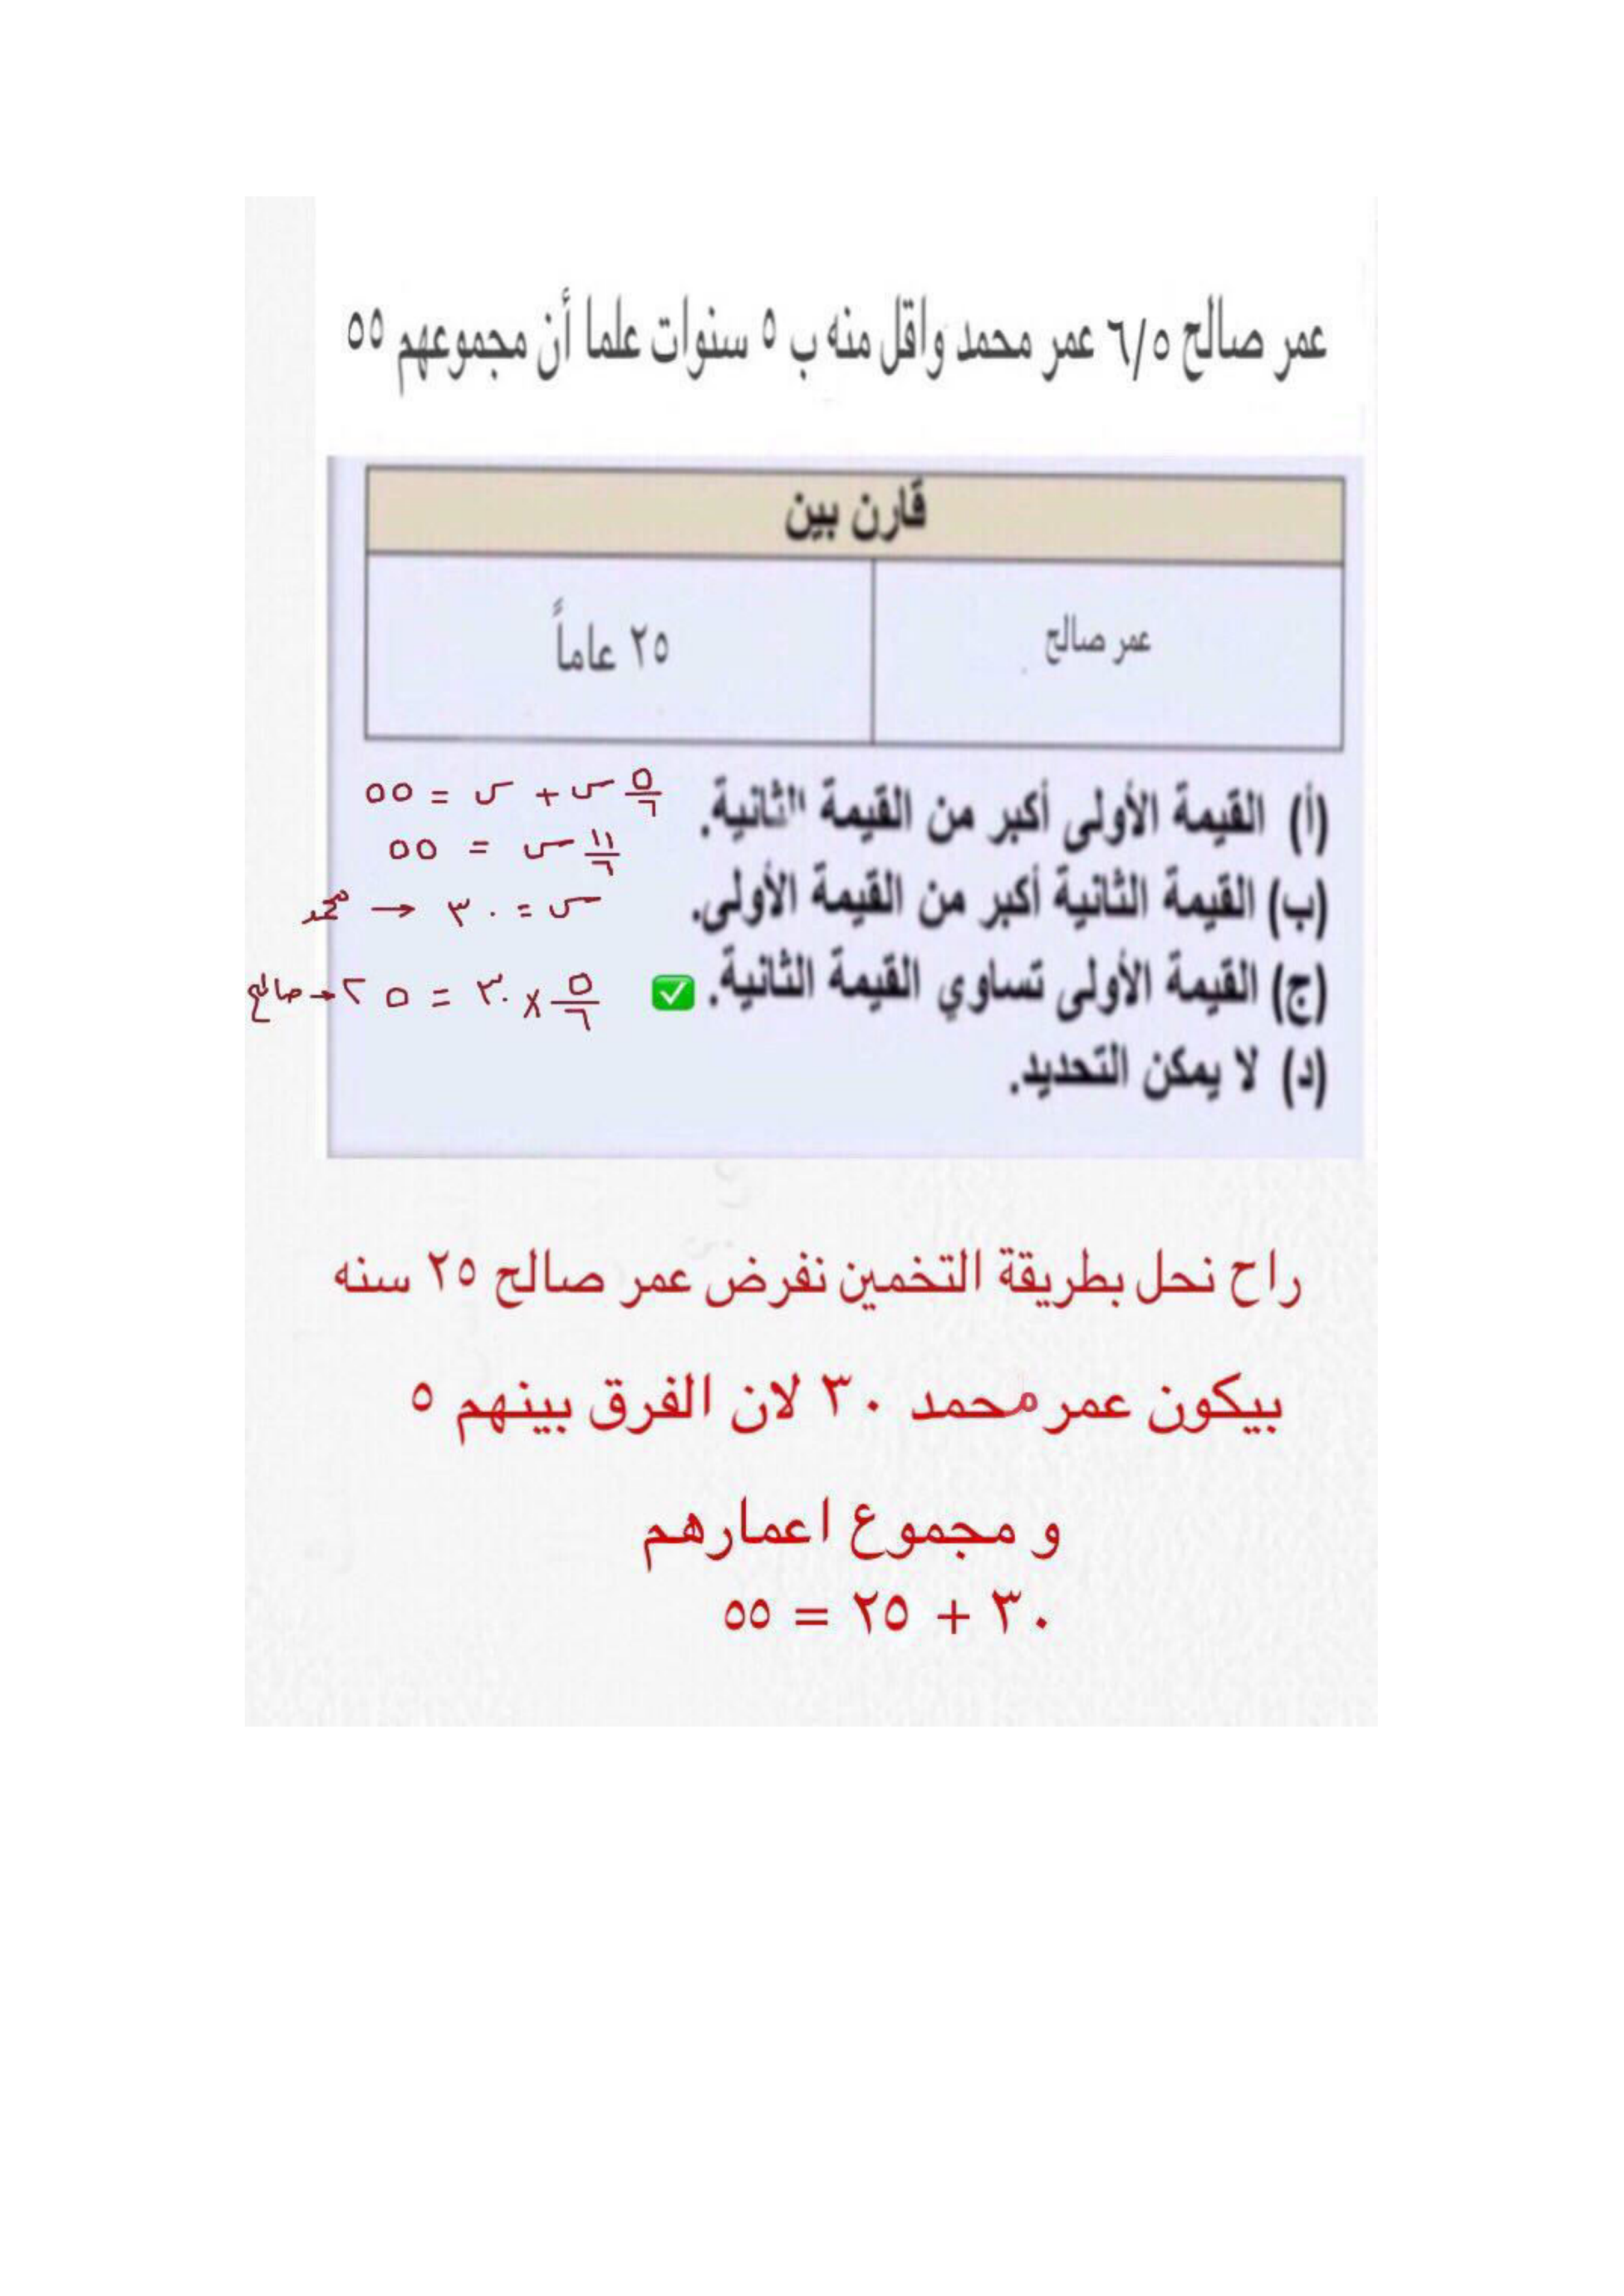 عمر صالح ٦/٥ عمر محمد واقل منه ب ٥ سنوات علما أن مجموعهم ٥٥
قارن بين
عمر صالح
٢٥ عاماً
(أ) القيمة الأولى أكبر من القيمة الثانية.
(ب) القيمة الثانية أكبر من القيمة الأولى.
(ج) القيمة الأولى تساوي القيمة الثانية. ✅
(د) لا يمكن التحديد.
٥/٦ س + س = ٥٥
١١/٦ س = ٥٥
س = ٣٠ → محمد
٥/٦ × ٣٠ = ٢٥ → صالح
راح نحل بطريقة التخمين نفرض عمر صالح ٢٥ سنه
بيكون عمر محمد ٣٠ لان الفرق بينهم ٥
و مجموع اعمارهم
٣٠ + ٢٥ = ٥٥